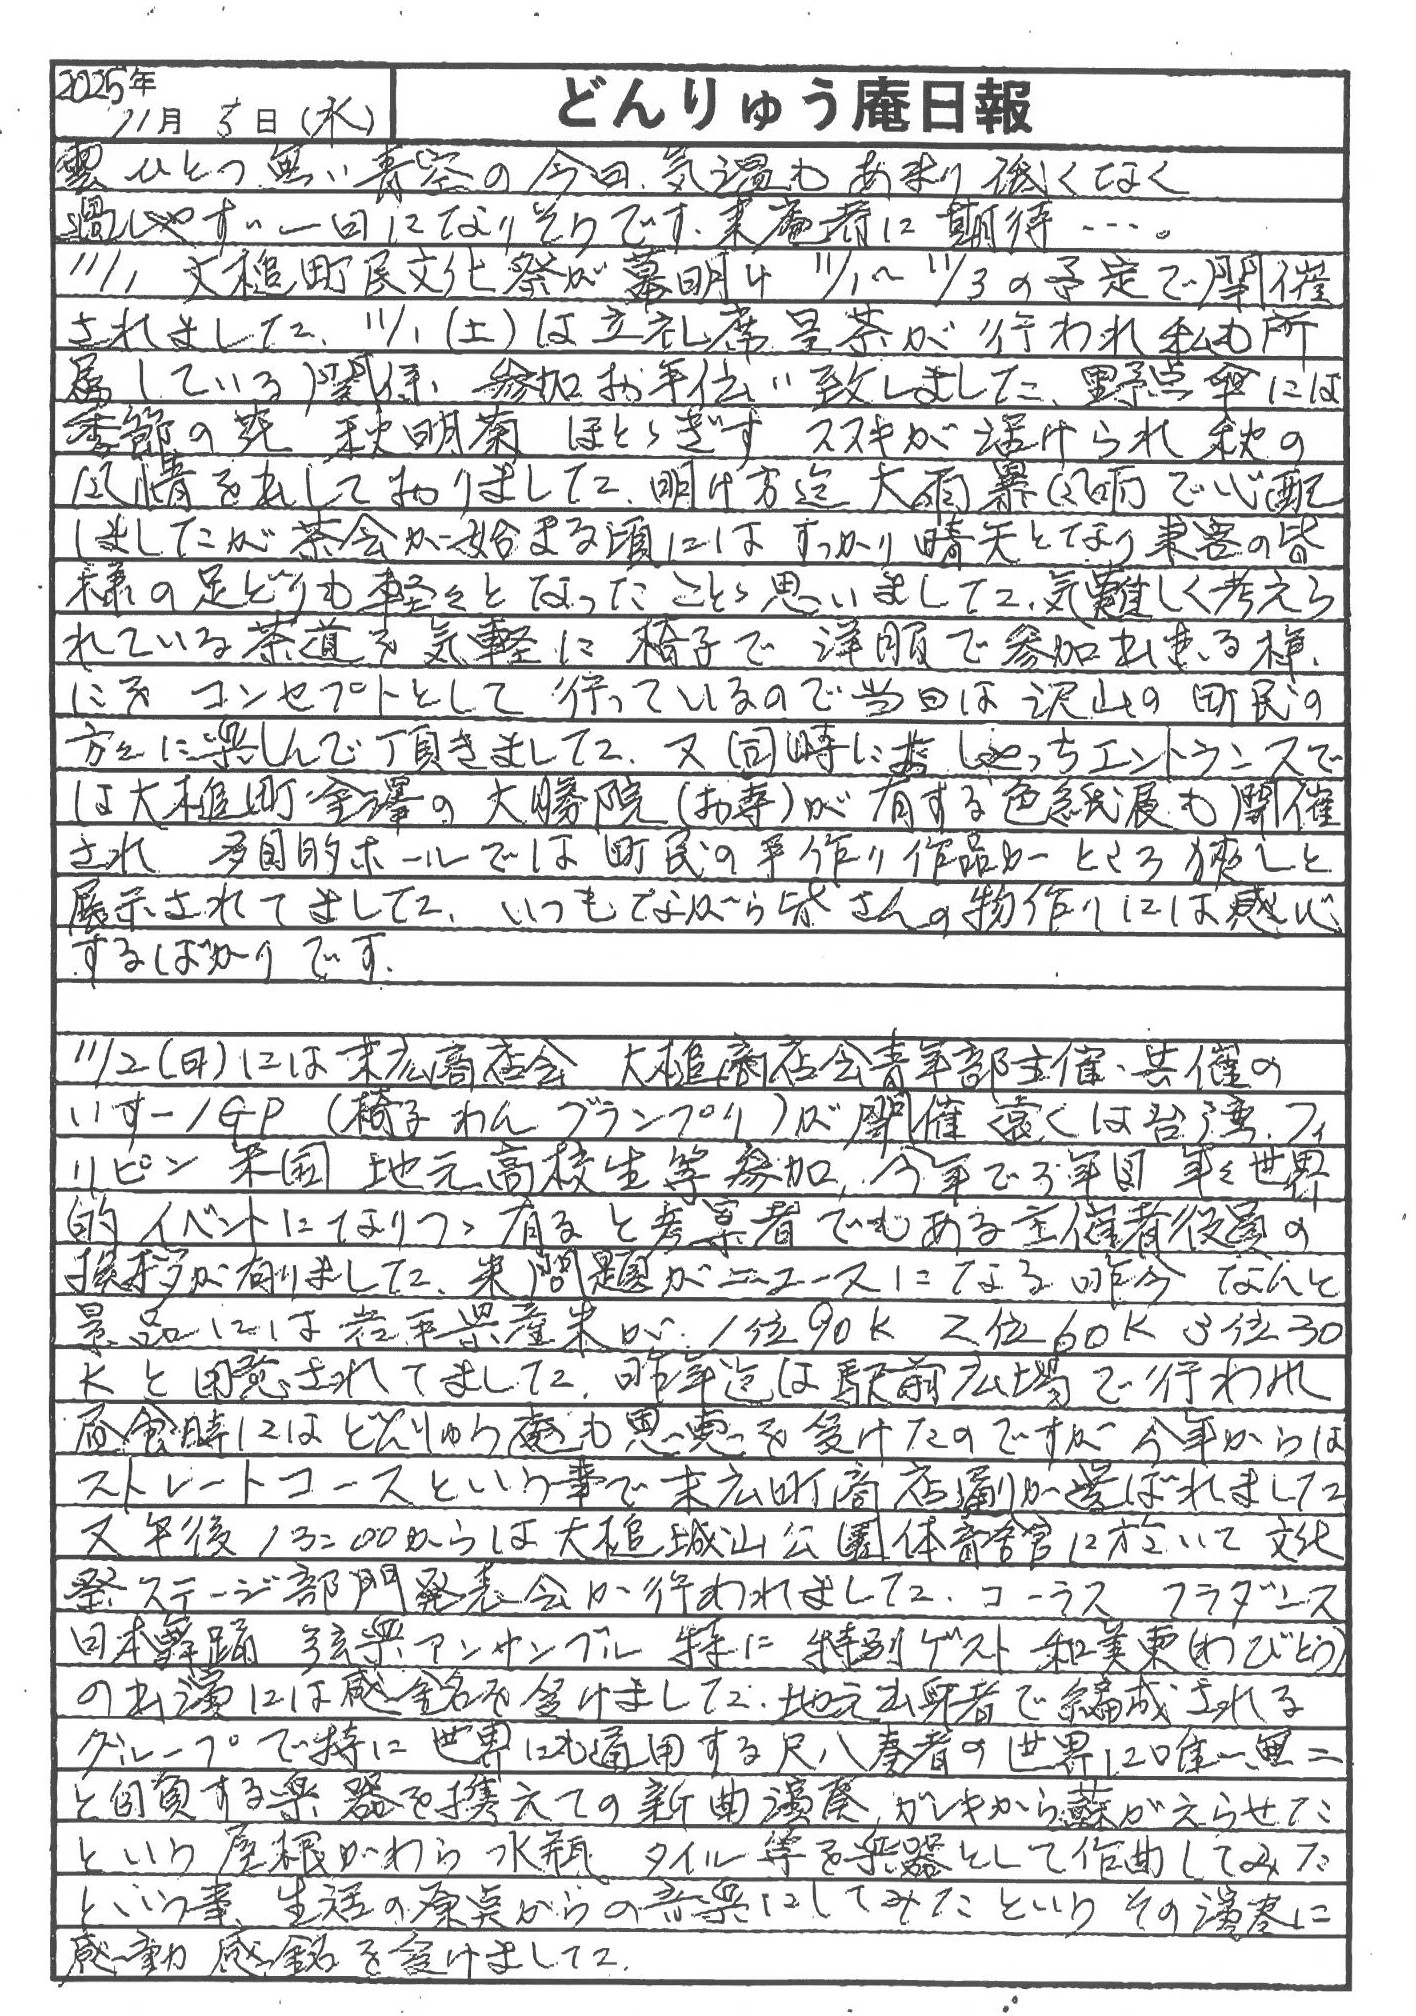 2025年
11月 5日(水)
どんりゅう庵日報
雲ひとつ無い青空の今日、気温もあまり低くなく
過しやすい一日になりそうです。来庵者に期待…。
11/1 大槌町民文化祭が幕明け 11/1〜11/3の予定で開催
されました。11/1(土)は立礼席呈茶が行われ私も所
属している関係、参加お手伝い致しました。野点傘には
季節の花 秋明菊 ほとゝぎす ススキが活けられ秋の
風情を出しておりました。明け方迄大雨暴風雨で心配
しましたが茶会が始まる頃にはすっかり晴天となり来客の皆
様の足どりも軽々となったことゝ思いました。気難しく考えら
れている茶道を気軽に椅子で洋服で参加出来る様、
にを コンセプトとして行っているので当日は沢山の町民の
方々に楽しんで頂きました。又同時におしゃっちエントランスで
は大槌町金澤の大勝院(お寺)が有する色紙展も開催
され 多目的ホールでは町民の手作り作品がところ狭しと
展示されてました。いつもながら皆さんの物作りには感心
するばかりです。
11/2(日)には末広商店会 大槌商店会青年部主催・共催の
いす-1GP (椅子わんグランプリ)が開催 遠くは台湾、フィ
リピン 米国 地元高校生等参加、今年で3年目 年々世界
的イベントになりつゝ有ると考案者でもある主催者役員の
挨拶が有りました。米問題がニュースになる昨今 なんと
景品には岩手県産米が、1位90K 2位60K 3位30
Kと用意されてました。昨年迄は駅前広場で行われ
昼食時にはどんりゅう庵も恩恵を受けたのですが今年からは
ストレートコースという事で末広町商店街が選ばれました
又午後13:00からは大槌城山公園体育館に於いて文化
祭ステージ部門発表会が行われました。コーラス フラダンス
日本舞踊 弦楽アンサンブル 特に特別ゲスト和美東(わびどう)
の出演には感銘を受けました。地元出身者で編成される
グループで特に世界にも通用する尺八奏者の世界に唯一無二
と自負する楽器を携えての新曲演奏、ガレキから蘇がえらせた
という屋根がわら 水瓶、タイル等を楽器として作曲してみた
という事 生活の原点からの音楽にしてみたというその演奏に
感動 感銘を受けました。